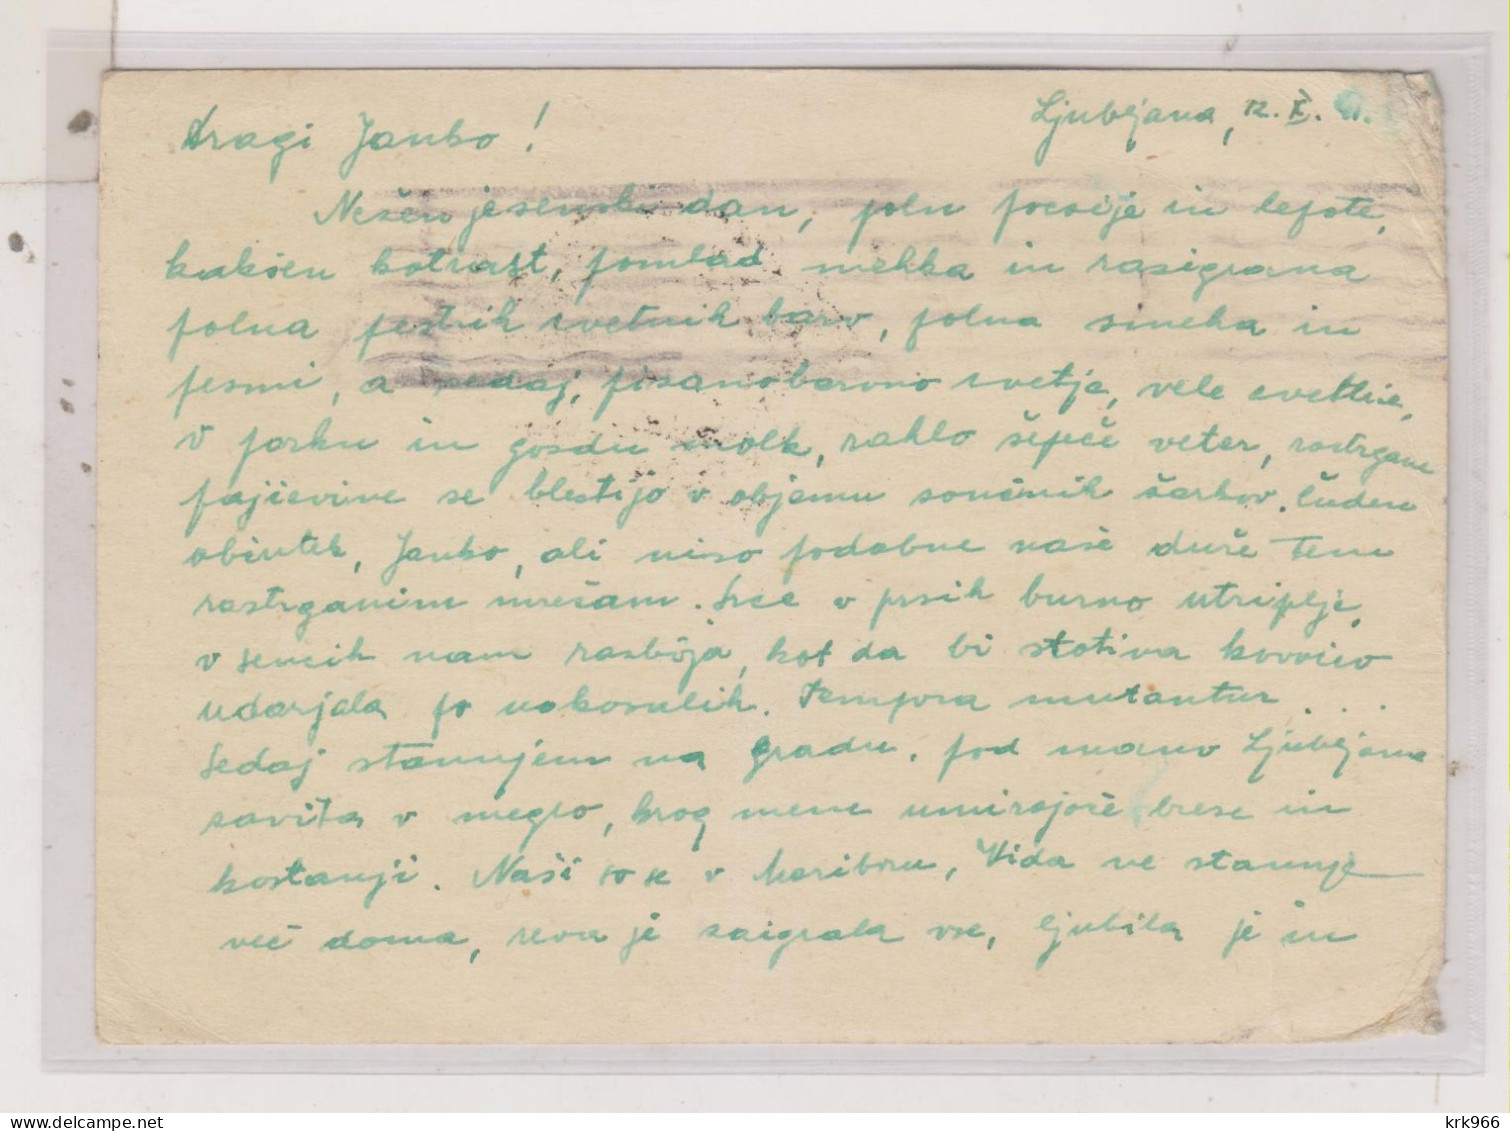 Ljubljana, 12. X. 41.
Dragi Janko!
Nežen jesenski dan, poln poezije in lepote,
kakšen kotrast, pomlad mehka in razigrana
polna pestrih cvetnih barv, polna smeha in
pesmi, a sedaj, pisanobarvno cvetje, vele cvetlice,
v parku in gozdu molk, rahlo šepeče veter, raztrgane
pajčevine se blestijo v objemu sončnih žarkov. Čuden
občutek, Janko, ali niso podobne naše duše tem
raztrganim mrežam. Srce v prsih burno utriplje,
v sencih nam razbija, kot da bi stotina kovačev
udarjala po nakovalih. Tempora mutantur . . .
Sedaj stanujem na gradu. Pod mano Ljubljana
zavita v meglo, krog mene umirajoče breze in
kostanji. Naši so še v Mariboru, Vida ne stanuje
več doma, reva je zaigrala vse, ljubila je in
krk966